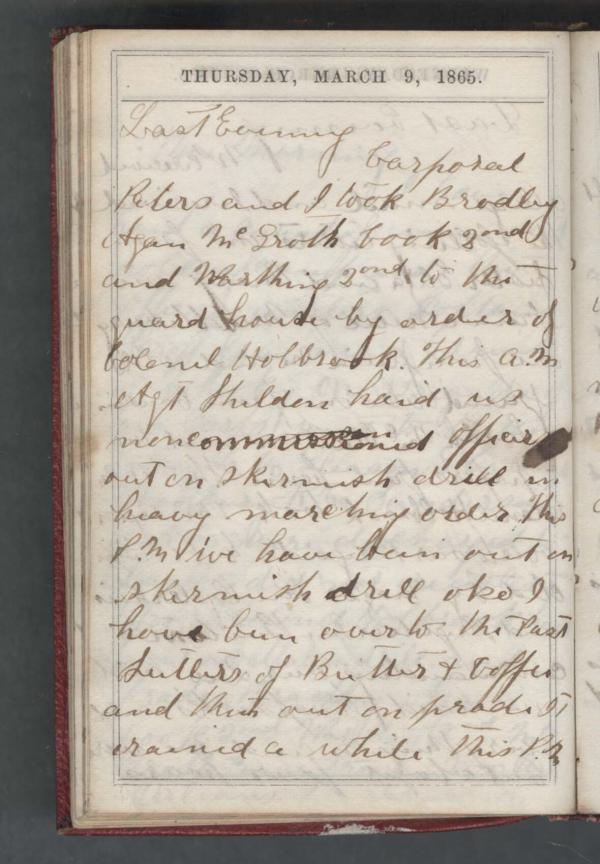 THURSDAY, MARCH 9, 1865.
Last Evening
Corporal
Peters and I took Brodley
Agan Mc Groth book 2ond
and Worthing 2ond to the
guard house by order of
Colenel Holbrook. This A.M
Agt Sheldon haid us
noncommissioned officers
out on skirmish drill in
heavy marching order This
P.M we have been out on
skirmish drill oko I
have bun over to the Post
Sutlers of Butter & Coffee
and then out on prade It
rained a while this P.M